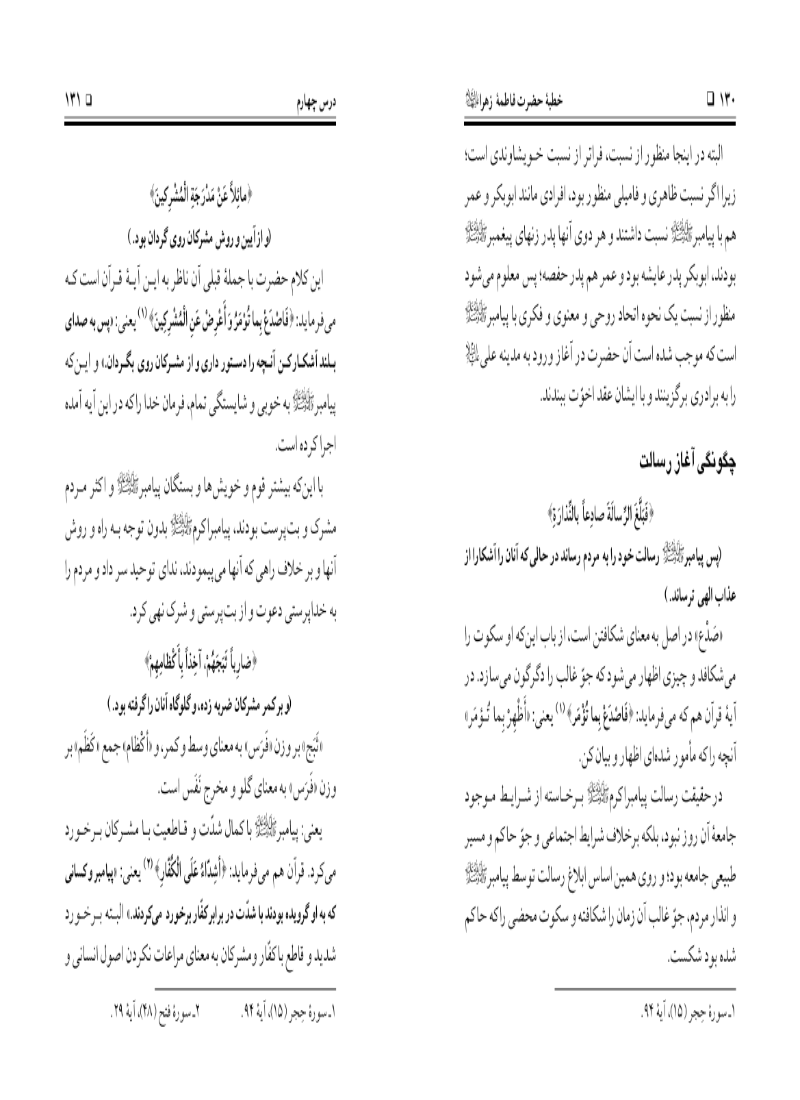 ۱۳۰ ❑ خطبهٔ حضرت فاطمهٔ زهرا ﷺ
البته در اینجا منظور از نسبت، فراتر از نسبت خـویشاوندی است؛
زیرا اگر نسبت ظاهری و فامیلی منظور بود، افرادی مانند ابوبکر و عمر
هم با پیامبر ﷺ نسبت داشتند و هر دوی آنها پدر زنهای پیغمبر ﷺ
بودند، ابوبکر پدر عایشه بود و عمر هم پدر حفصه؛ پس معلوم می‌شود
منظور از نسبت یک نحوه اتحاد روحی و معنوی و فکری با پیامبر ﷺ
است که موجب شده است آن حضرت در آغاز ورود به مدینه علی علیه‌السلام
را به برادری برگزینند و با ایشان عقد اخوّت ببندند.
چگونگی آغاز رسالت
﴿فَبَلَّغَ الرِّسالَةَ صادِعاً بالنَّذارَةِ﴾
(پس پیامبر ﷺ رسالت خود را به مردم رساند در حالی که آنان را آشکارا از
عذاب الهی ترساند.)
«صَدْع» در اصل به معنای شکافتن است، از باب این‌که او سکوت را
می‌شکافد و چیزی اظهار می‌شود که جوّ غالب را دگرگون می‌سازد. در
آیهٔ قرآن هم که می‌فرماید: ﴿فَاصْدَعْ بِما تُؤْمَر﴾ (۱) یعنی: «أَظْهِرْ بِما تُـؤمَر»
آنچه را که مأمور شده‌ای اظهار و بیان کن.
در حقیقت رسالت پیامبر اکرم ﷺ بـرخـاسته از شـرایـط مـوجود
جامعهٔ آن روز نبود، بلکه برخلاف شرایط اجتماعی و جوّ حاکم و مسیر
طبیعی جامعه بود؛ و روی همین اساس ابلاغ رسالت توسط پیامبر ﷺ
و انذار مردم، جوّ غالب آن زمان را شکافته و سکوت محضی را که حاکم
شده بود شکست.
۱ـ سورهٔ حِجر (۱۵)، آیهٔ ۹۴.
درس چهارم ❑ ۱۳۱
﴿مائِلاً عَنْ مَدْرَجَةِ الْمُشْرِكینَ﴾
(و از آیین و روش مشرکان روی گردان بود.)
این کلام حضرت با جملهٔ قبلی آن ناظر به ایـن آیـهٔ قـرآن است کـه
می‌فرماید: ﴿فَاصْدَعْ بِما تُؤْمَرُ وَ أَعْرِضْ عَنِ الْمُشْرِكینَ﴾ (۱) یعنی: «پس به صدای
بـلند آشکـار کـن آنـچه را دسـتور داری و از مشـرکان روی بگـردان.» و ایـن‌که
پیامبر ﷺ به خوبی و شایستگی تمام، فرمان خدا را که در این آیه آمده
اجرا کرده است.
با این‌که بیشتر قوم و خویش‌ها و بستگان پیامبر ﷺ و اکثر مـردم
مشرک و بت‌پرست بودند، پیامبر اکرم ﷺ بدون توجه بـه راه و روش
آنها و بر خلاف راهی که آنها می‌پیمودند، ندای توحید سر داد و مردم را
به خداپرستی دعوت و از بت‌پرستی و شرک نهی کرد.
﴿ضارِباً ثَبَجَهُمْ، آخِذاً بِأَكْظامِهِمْ﴾
(و بر کمر مشرکان ضربه زده، و گلوگاه آنان را گرفته بود.)
«ثَبَج» بر وزن «فَرَس» به معنای وسط و کمر، و «أَكْظام» جمع «كَظَم» بر
وزن «فَرَس» به معنای گلو و مخرج نَفَس است.
یعنی: پیامبر ﷺ با کمال شدّت و قـاطعیت بـا مشـرکان بـرخـورد
می‌کرد. قرآن هم می‌فرماید: ﴿أَشِدّاءُ عَلَی الْكُفّارِ﴾ (۲) یعنی: «پیامبر و کسانی
که به او گرویده بودند با شدّت در برابر کفّار برخورد می‌کردند.» البـته بـرخـورد
شدید و قاطع با کفّار و مشرکان به معنای مراعات نکردن اصول انسانی و
۱ـ سورهٔ حِجر (۱۵)، آیهٔ ۹۴. ۲ـ سورهٔ فتح (۴۸)، آیهٔ ۲۹.